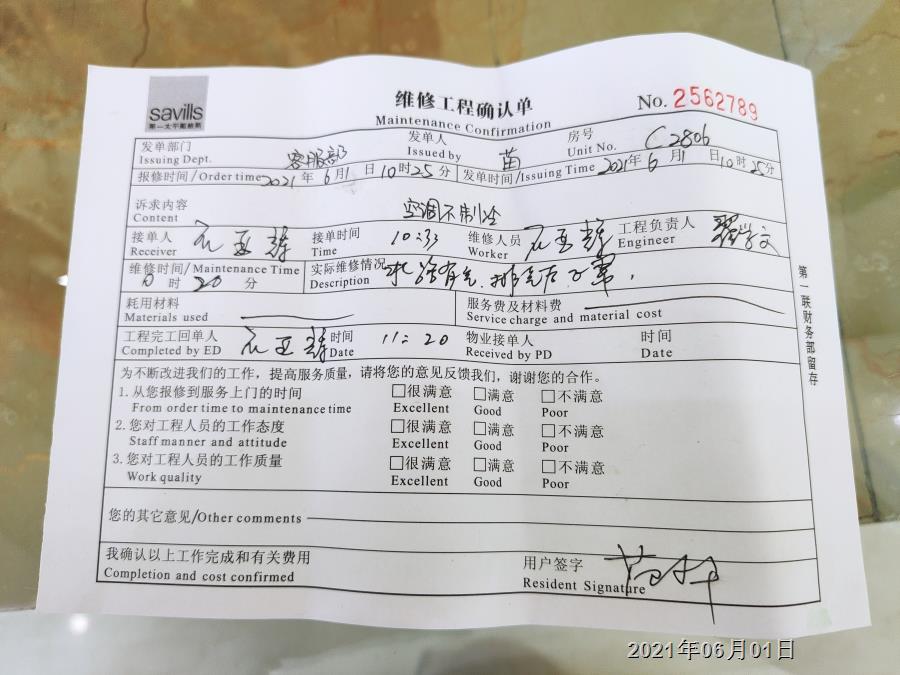 savills
第一太平戴维斯
维修工程确认单
Maintenance Confirmation
No. 2562789
发单部门 Issuing Dept. 客服部 发单人 Issued by 苗 房号 Unit No. C2806
报修时间/Order time 2021年6月1日10时25分 发单时间/Issuing Time 2021年6月1日10时25分
诉求内容 Content 空调不制冷
接单人 Receiver 接单时间 Time 10:33 维修人员 Worker 工程负责人 Engineer
维修时间/Maintenance Time 时20分 实际维修情况 Description
耗用材料 Materials used 服务费及材料费 Service charge and material cost
工程完工回单人 Completed by ED 时间 Date 11:20 物业接单人 Received by PD 时间 Date
为不断改进我们的工作，提高服务质量，请将您的意见反馈我们，谢谢您的合作。
1.从您报修到服务上门的时间 □很满意 □满意 □不满意
From order time to maintenance time Excellent Good Poor
2.您对工程人员的工作态度 □很满意 □满意 □不满意
Staff manner and attitude Excellent Good Poor
3.您对工程人员的工作质量 □很满意 □满意 □不满意
Work quality Excellent Good Poor
您的其它意见/Other comments
我确认以上工作完成和有关费用 用户签字
Completion and cost confirmed Resident Signature
第一联财务部留存
2021年06月01日